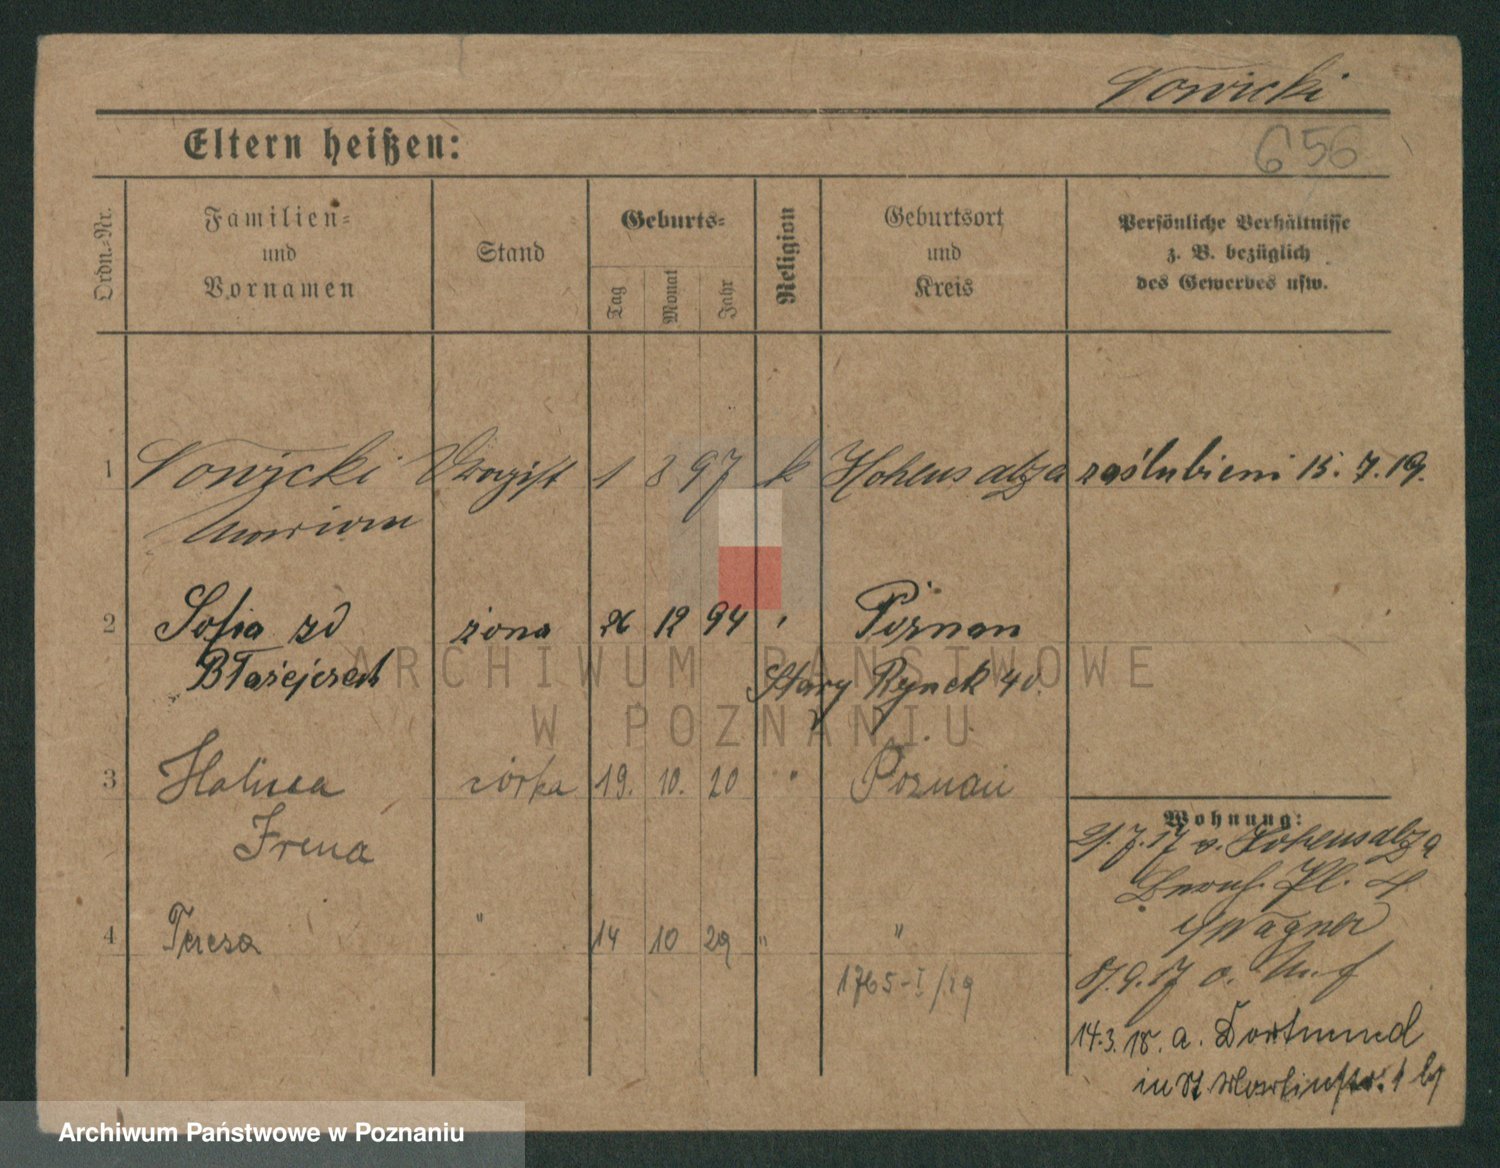 Nowicki
Eltern heißen:
656
Ordn.-Nr.
Familien-
und
Vornamen
Stand
Geburts-
Tag
Monat
Jahr
Religion
Geburtsort
und
Kreis
Persönliche Verhältnisse
z. B. bezüglich
des Gewerbes usw.
1 Nowicki Drogist 1 8 97 k Hohensalza zaślubieni 15. 7. 19.
Marian
2 Sofia zd żona 12 94 Poznan
Błażejczak Stary Rynek 40.
3 Halina córka 19. 10. 20 " Poznań
Irena
4 Teresa " 14 10 29 " "
1765-I/29
Wohnung:
21.7.17 v. Hohensalza
Bernh. Pl. 4
b/Wagner
8/9.17
14.3.18. a. Dortmund
in St. Martinstr.
ARCHIWUM PAŃSTWOWE
W POZNANIU
Archiwum Państwowe w Poznaniu